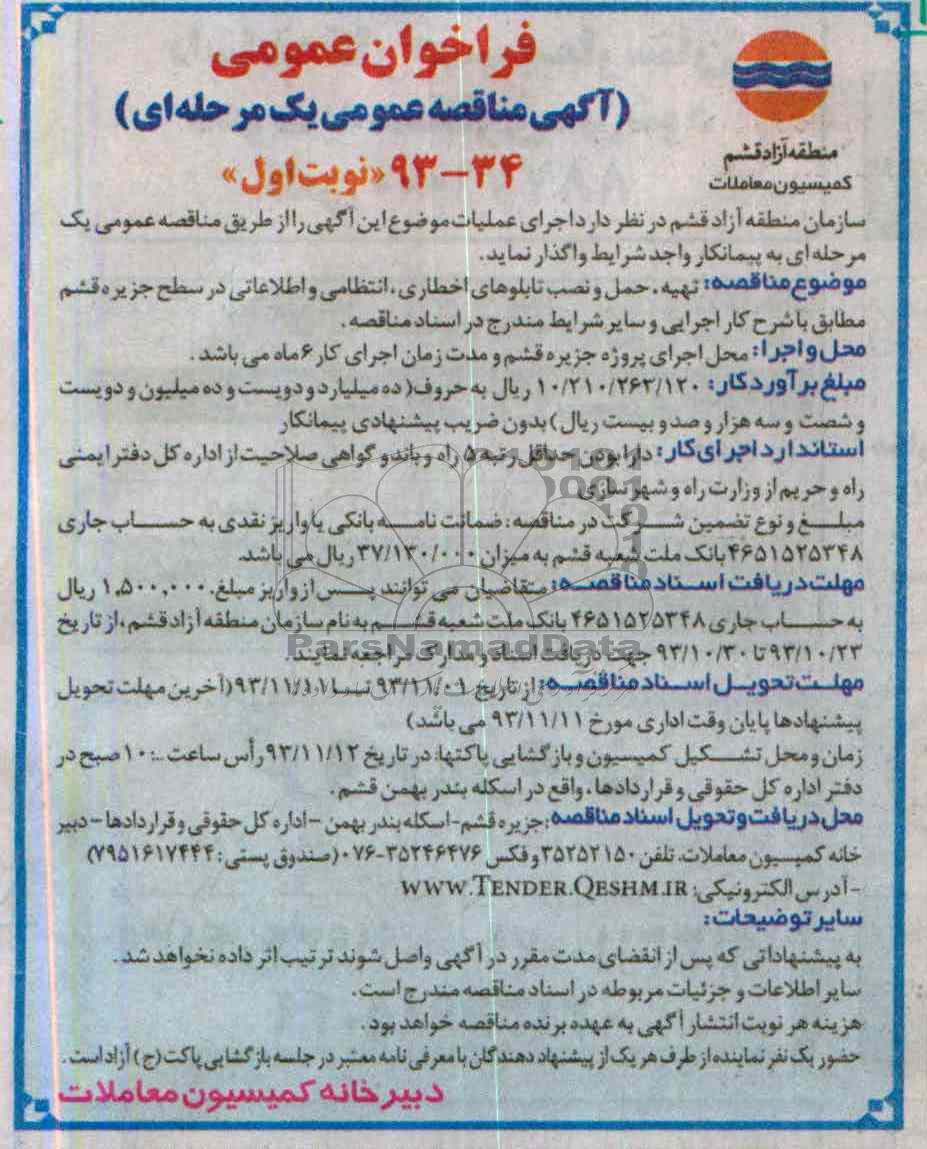 فراخوان عمومی
(آگهی مناقصه عمومی یک مرحله ای)
۳۴-۹۳ «نوبت اول»
منطقه آزاد قشم
کمیسیون معاملات
سازمان منطقه آزاد قشم در نظر دارد اجرای عملیات موضوع این آگهی را از طریق مناقصه عمومی یک
مرحله ای به پیمانکار واجد شرایط واگذار نماید.
موضوع مناقصه: تهیه، حمل و نصب تابلوهای اخطاری، انتظامی و اطلاعاتی در سطح جزیره قشم
مطابق با شرح کار اجرایی و سایر شرایط مندرج در اسناد مناقصه.
محل و اجرا: محل اجرای پروژه جزیره قشم و مدت زمان اجرای کار ۶ ماه می باشد.
مبلغ برآورد کار: ۱۰/۲۱۰/۲۶۳/۱۲۰ ریال به حروف( ده میلیارد و دویست و ده میلیون و دویست
و شصت و سه هزار و صد و بیست ریال) بدون ضریب پیشنهادی پیمانکار
استاندارد اجرای کار: دارا بودن حداقل رتبه ۵ راه و باند و گواهی صلاحیت از اداره کل دفتر ایمنی
راه و حریم از وزارت راه و شهرسازی
مبلغ و نوع تضمین شرکت در مناقصه: ضمانت نامه بانکی یا واریز نقدی به حساب جاری
۴۶۵۱۵۲۵۳۴۸ بانک ملت شعبه قشم به میزان ۳۷/۱۳۰/۰۰۰ ریال می باشد.
مهلت دریافت اسناد مناقصه: متقاضیان می توانند پس از واریز مبلغ ۱,۵۰۰,۰۰۰ ریال
به حساب جاری ۴۶۵۱۵۲۵۳۴۸ بانک ملت شعبه قشم به نام سازمان منطقه آزاد قشم، از تاریخ
۹۳/۱۰/۲۳ تا ۹۳/۱۰/۳۰ جهت دریافت اسناد و مدارک مراجعه نمایند.
مهلت تحویل اسناد مناقصه: از تاریخ ۹۳/۱۱/۰۱ تا ۹۳/۱۱/۱۱(آخرین مهلت تحویل
پیشنهادها پایان وقت اداری مورخ ۹۳/۱۱/۱۱ می باشد)
زمان و محل تشکیل کمیسیون و بازگشایی پاکتها: در تاریخ ۹۳/۱۱/۱۲ رأس ساعت ۱۰ صبح در
دفتر اداره کل حقوقی و قراردادها، واقع در اسکله بندر بهمن قشم.
محل دریافت و تحویل اسناد مناقصه: جزیره قشم- اسکله بندر بهمن - اداره کل حقوقی و قراردادها - دبیر
خانه کمیسیون معاملات، تلفن ۳۵۲۵۲۱۵۰ و فکس ۳۵۲۴۶۴۷۶-۰۷۶ (صندوق پستی: ۷۹۵۱۶۱۷۴۴۴)
- آدرس الکترونیکی: WWW.TENDER.QESHM.IR
سایر توضیحات:
به پیشنهاداتی که پس از انقضای مدت مقرر در آگهی واصل شوند ترتیب اثر داده نخواهد شد.
سایر اطلاعات و جزئیات مربوطه در اسناد مناقصه مندرج است.
هزینه هر نوبت انتشار آگهی به عهده برنده مناقصه خواهد بود.
حضور یک نفر نماینده از طرف هر یک از پیشنهاد دهندگان با معرفی نامه معتبر در جلسه بازگشایی پاکت (ج) آزاد است.
دبیرخانه کمیسیون معاملات
ParsNamadData